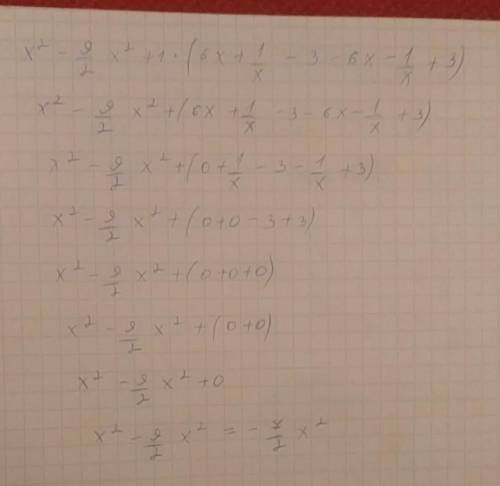 x² - 9/2 x² + 1 · (6x + 1/x - 3 - 6x - 1/x + 3)
x² - 9/2 x² + (6x + 1/x - 3 - 6x - 1/x + 3)
x² - 9/2 x² + (0 + 1/x - 3 - 1/x + 3)
x² - 9/2 x² + (0 + 0 - 3 + 3)
x² - 9/2 x² + (0 + 0 + 0)
x² - 9/2 x² + (0 + 0)
x² - 9/2 x² + 0
x² - 9/2 x² = - 7/2 x²